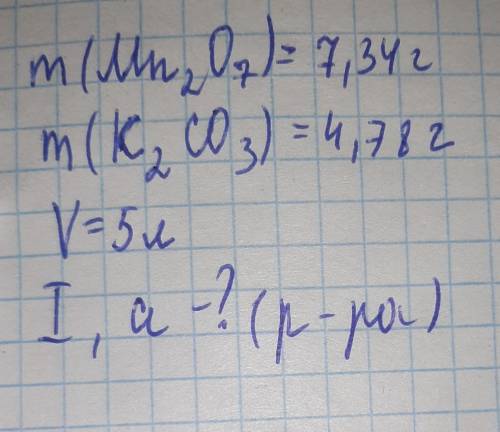 m(Mn₂O₇)= 7,34г
m(K₂CO₃)=4,78г
V=5л
I, a -? (р-ра)